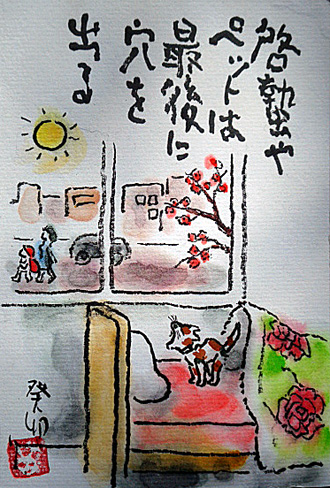 啓蟄や
ペットは
最後に
穴を
出る
癸卯